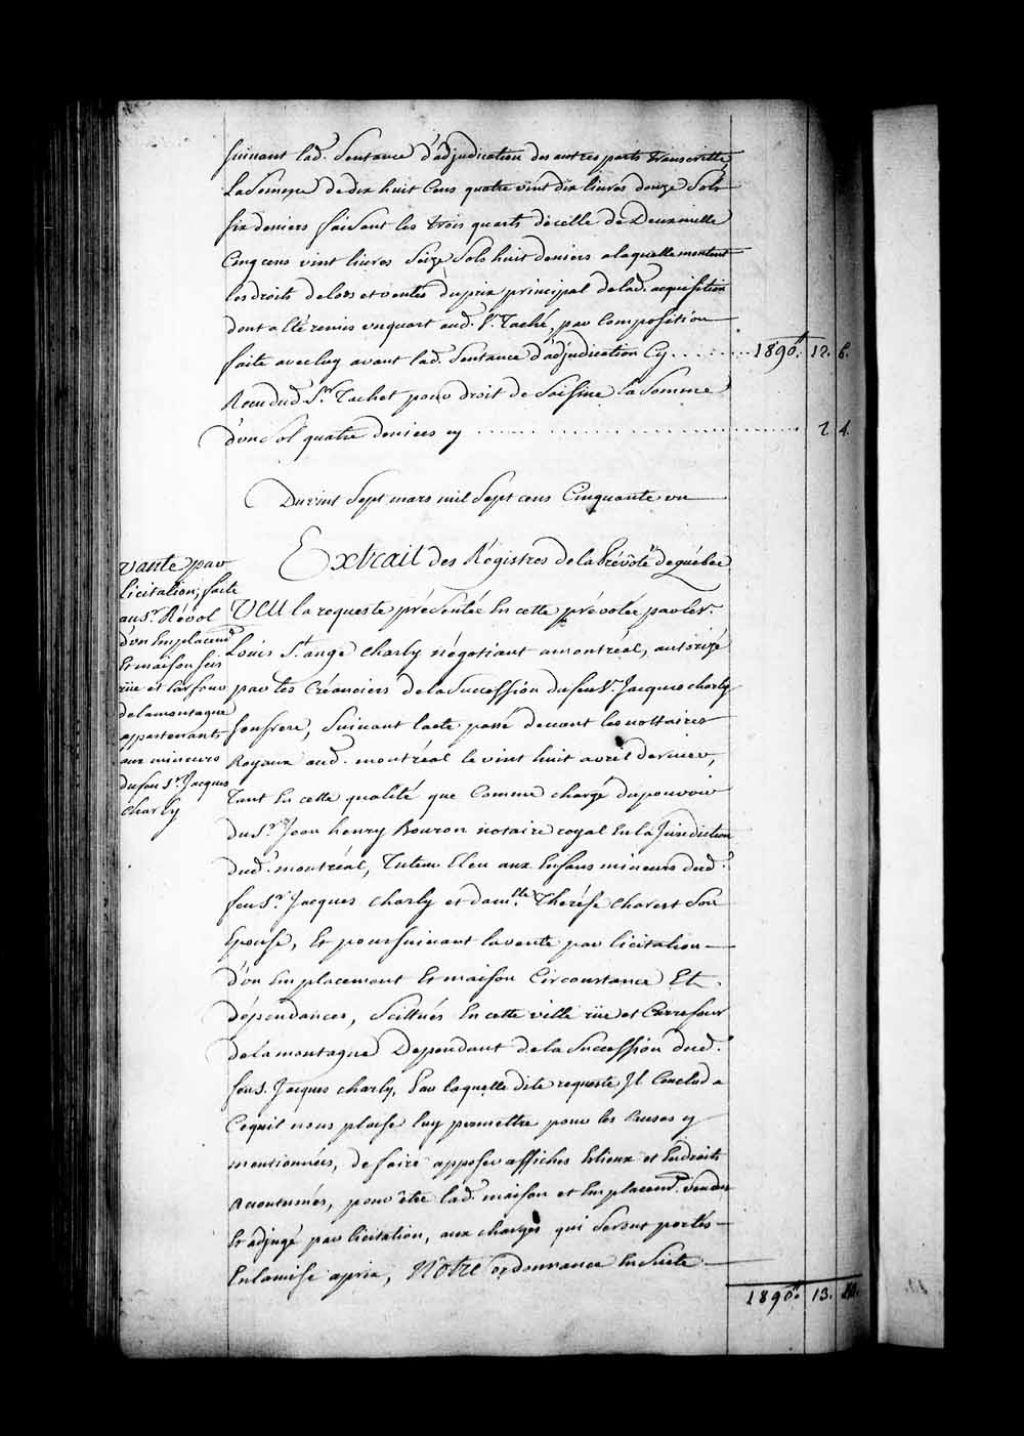 suivant lad. Sentance d'adjudication des autres parts transcritte
La Somme de dix huit Cens quatre vint dix livres douze Sols
six deniers faisant les trois quarts de celle de Deux mille
Cinq cens vint livres Seize Sols huit deniers a laquelle montent
les droits de lots et ventes du prix principal de lad. acquisition
dont a Eté remis un quart aud. Sr. Taché, par Composition
faite avec luy avant lad. Sentance d'adjudication Cy ....... 1890ᵗᵗ. 12. 6.
Reçu dud. Sr. Tachet pour droit de Saisine la Somme
d'un Sol quatre deniers cy ....... 1. 4.
Du vint Sept mars mil Sept cens Cinquante un
Extrait des Régistres de la Prévôté de quebec
vante par
licitation, faite
au Sr. Révol
d'un Emplacemt.
Et maison scis
rüe et Carfour
de la montagne
appartenants
aux mineurs
du feu Sr. Jacques
charly
VEU la requeste présentée En cette prévotée par le Sr.
Louis St. ange charly négotiant a montréal, autorizé
par les Créanciers de la Succession du feu Sr. Jacques charly
son frere, Suivant l'acte passé devant les nottaires
Royaux aud. montréal le vint huit avril dernier,
Tant En cette qualité que Comme chargé du pouvoir
du Sr. Jean henry Bouron notaire royal En la Jurisdiction
dud. montréal, Tuteur Eleu aux Enfans mineurs dud.
feu Sr. Jacques charly et damlle. Therése charest Son
Epouse, Et poursuivant la vente par licitation
d'un Emplacement Et maison Circonstance Et
dépendances, Scittués En cette ville rüe et Carrefour
de la montagne Dependant de la Succession dud.
feu S. Jacques charly, Par laquelle dite requeste Il Conclud a
Ce quil nous plaise luy permettre pour les Causes y
mentionnées, de faire apposer affiches Es lieux et Endroits
accoutumés, pour être lad. maison et Emplacemt. vendu
Et adjugé par licitation, aux charges qui Seront portés
En la mise a prix, Nôtre ordonnance En Suite
1890ᵗᵗ. 13. 10.